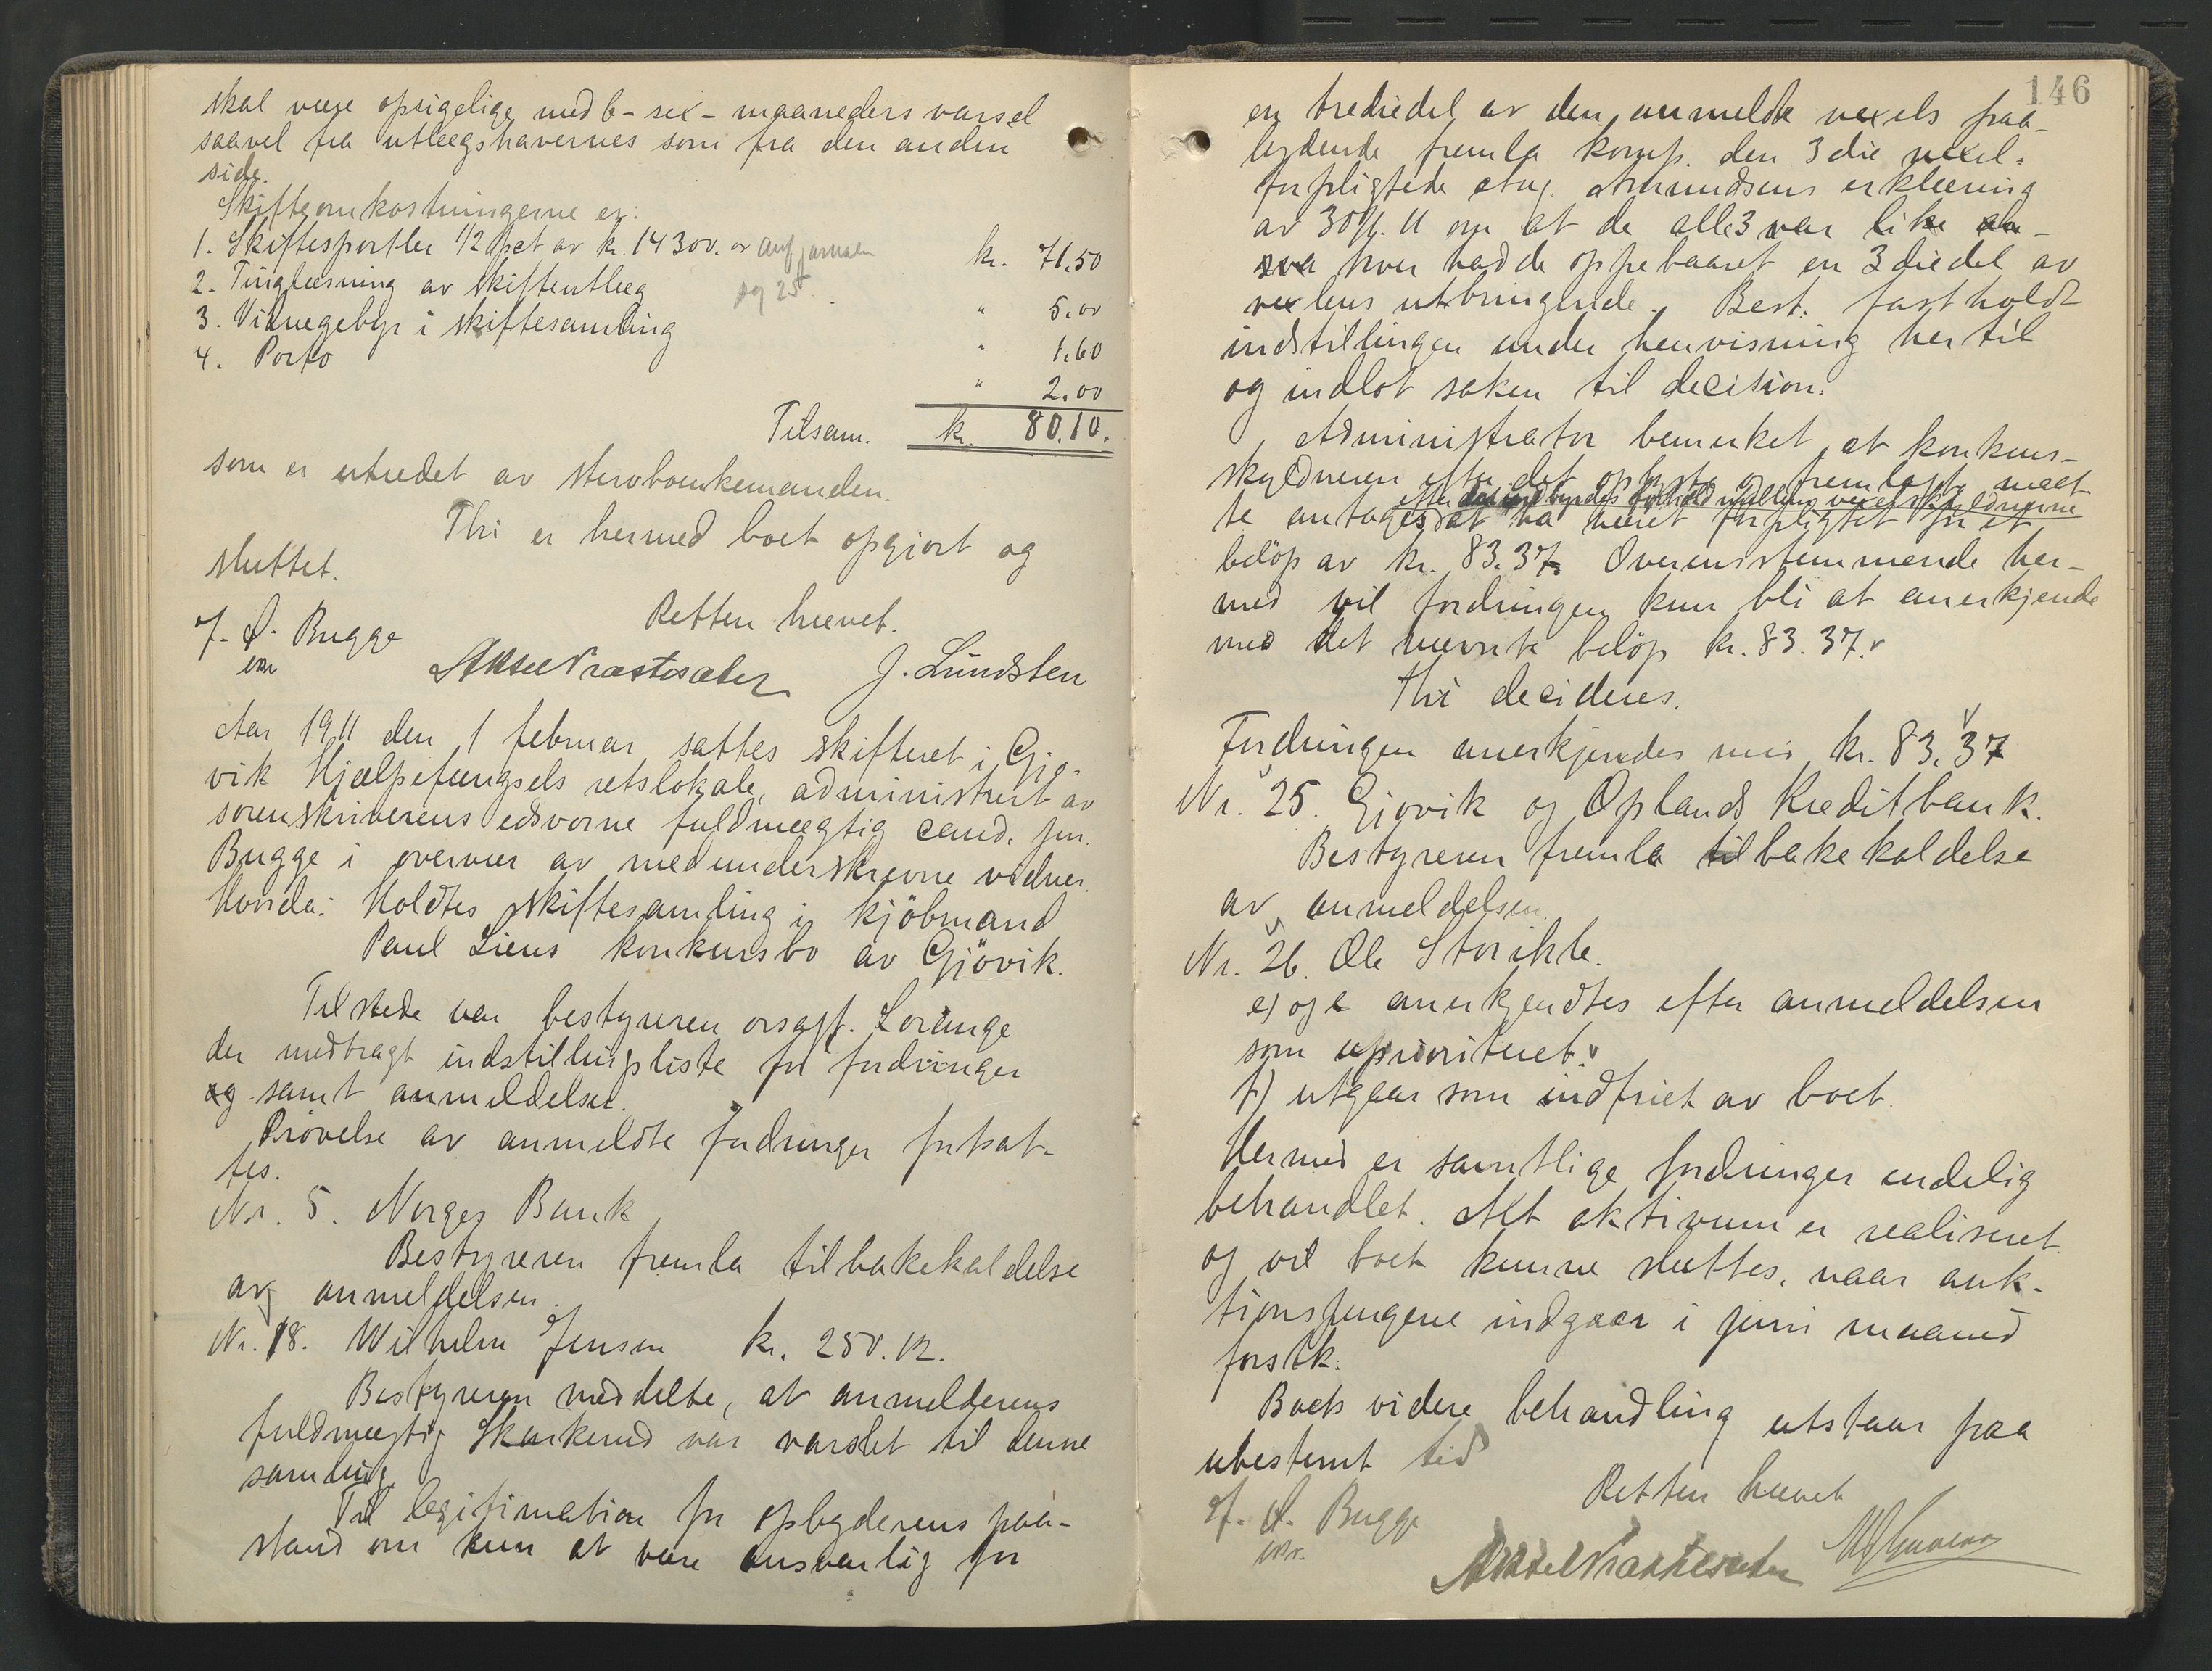 skal være opsigelige med 6 - sex - maaneders varsel
saavel fra utlægshavernes som fra den anden
side.
Skifteomkostningerne er:
1. Skiftesportler 1/2 pct av kr. 14300. kr. 71.50
2. Tinglæsning av skifteutlæg " 5.00
3. Vidnegebyr i skiftesamling " 1.60
4. Porto " 2.00
Tilsam. kr. 80.10.
som er utredet av stervboenkemanden.
Thi er hermed boet opgjort og
sluttet.
Retten hævet.
F. D. Bugge
J. Lundsten
Aar 1911 den 1 februar sattes skifteret i Gjø-
vik Hjælpefængsels retslokale, administrert av
sorenskriverens edsvorne fuldmægtig cand. jur.
Bugge i overvær av medunderskrevne vidner.
Hvorda: Holdtes skiftesamling i kjöbmand
Paul Liens konkursbo av Gjövik.
Tilstede var bestyreren orsagf. Lorange
der medbragt indstillingsliste for fordringer
og samt anmeldelser.
Prövelse av anmeldte fordringer fortsat-
tes.
Nr. 5. Norges Bank
Bestyreren fremla tilbakekaldelse
av anmeldelsen.
Nr. 18. Wilhelm Jensen kr. 250.12.
Bestyreren meddelte, at anmelderens
fuldmægtig Skarkerud var varslet til denne
samling.
Til legitimation for opbyderens paa-
stand om kun at være ansvarlig for
146
en trediedel av den anmeldte vexels paa-
lydende fremla komp. den 3die vexel-
forpligtede Aug. Amundsens erklæring
av 30/1. 11 om at de alle 3 var like an-
sva hver hadde oppebaaret en 3diedel av
vexlens utbringende. Best. fastholdt
indstillingen under henvisning hertil
og indlot saken til decision.
Administrator bemerket, at konkurs-
skyldneren efter det oplyste og fremlagte maat-
efter det indbyrdes forhold mellem vexelskyldnerne
te antages at ha været forpligtet for et
belöp av kr. 83.37. Overensstemmende her-
med vil fordringen kun bli at anerkjende
med det nævnte belöp kr. 83.37.
Thi decideres.
Fordringen anerkjendes med kr. 83.37
Nr. 25. Gjövik og Oplands Kreditbank.
Bestyreren fremla tilbakekaldelse
av anmeldelsen.
Nr. 26. Ole Storikle.
e) og anerkjendtes efter anmeldelsen
som uprioriteret.
f) utgaar som indfriet av boet.
Hermed er samtlige fordringer endelig
behandlet. Alt aktivum er realiseret
og vil boet kunne sluttes, naar auk-
tionspengene indgaar i juni maaned
förstk.
Boets videre behandling utstaar paa
ubestemt tid
Retten hævet
F. D. Bugge